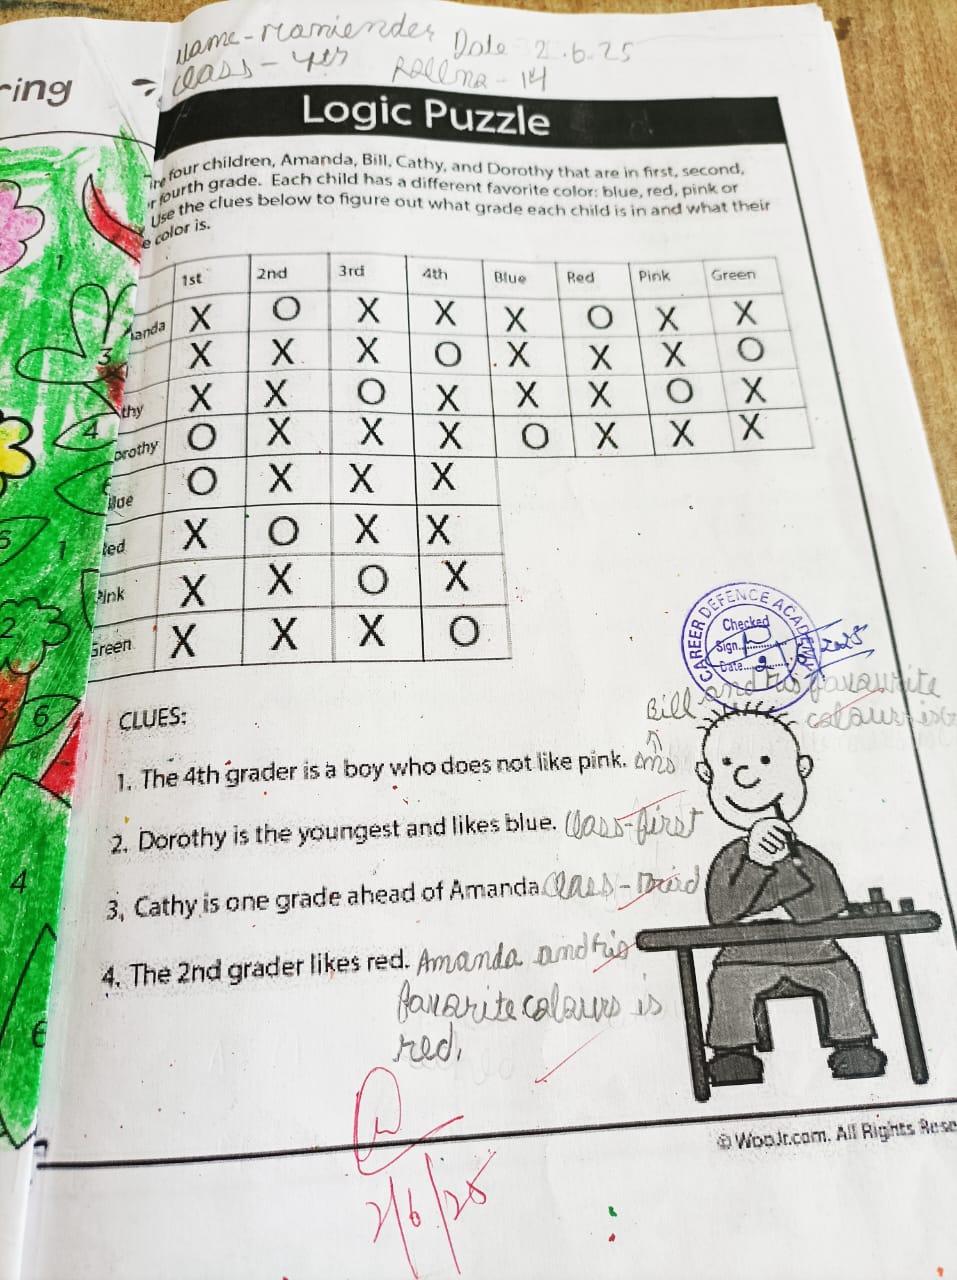 ring
Name-
Date 2.6.25
class - 4th
Rollno - 14
Logic Puzzle
four children, Amanda, Bill, Cathy, and Dorothy that are in first, second,
r fourth grade. Each child has a different favorite color: blue, red, pink or
Use the clues below to figure out what grade each child is in and what their
e color is.
1st 2nd 3rd 4th Blue Red Pink Green
anda X O X X X O X X
X X X O X X X O
thy X X O X X X O X
orothy O X X X O X X X
lue O X X X
Red X O X X
Pink X X O X
Green X X X O
CAREER DEFENCE ACADEMY
Checked
Sign.
Date... 2 6 2025
Bill and his favourite
colour is
CLUES:
1. The 4th grader is a boy who does not like pink. Ans
2. Dorothy is the youngest and likes blue. Class-first
3, Cathy is one grade ahead of Amanda. Class-
4. The 2nd grader likes red. Amanda and his
favorite colours is
red.
2/6/25
© WooJr.com. All Rights Rese
1
3
4
5
1
2
3
6
4
6